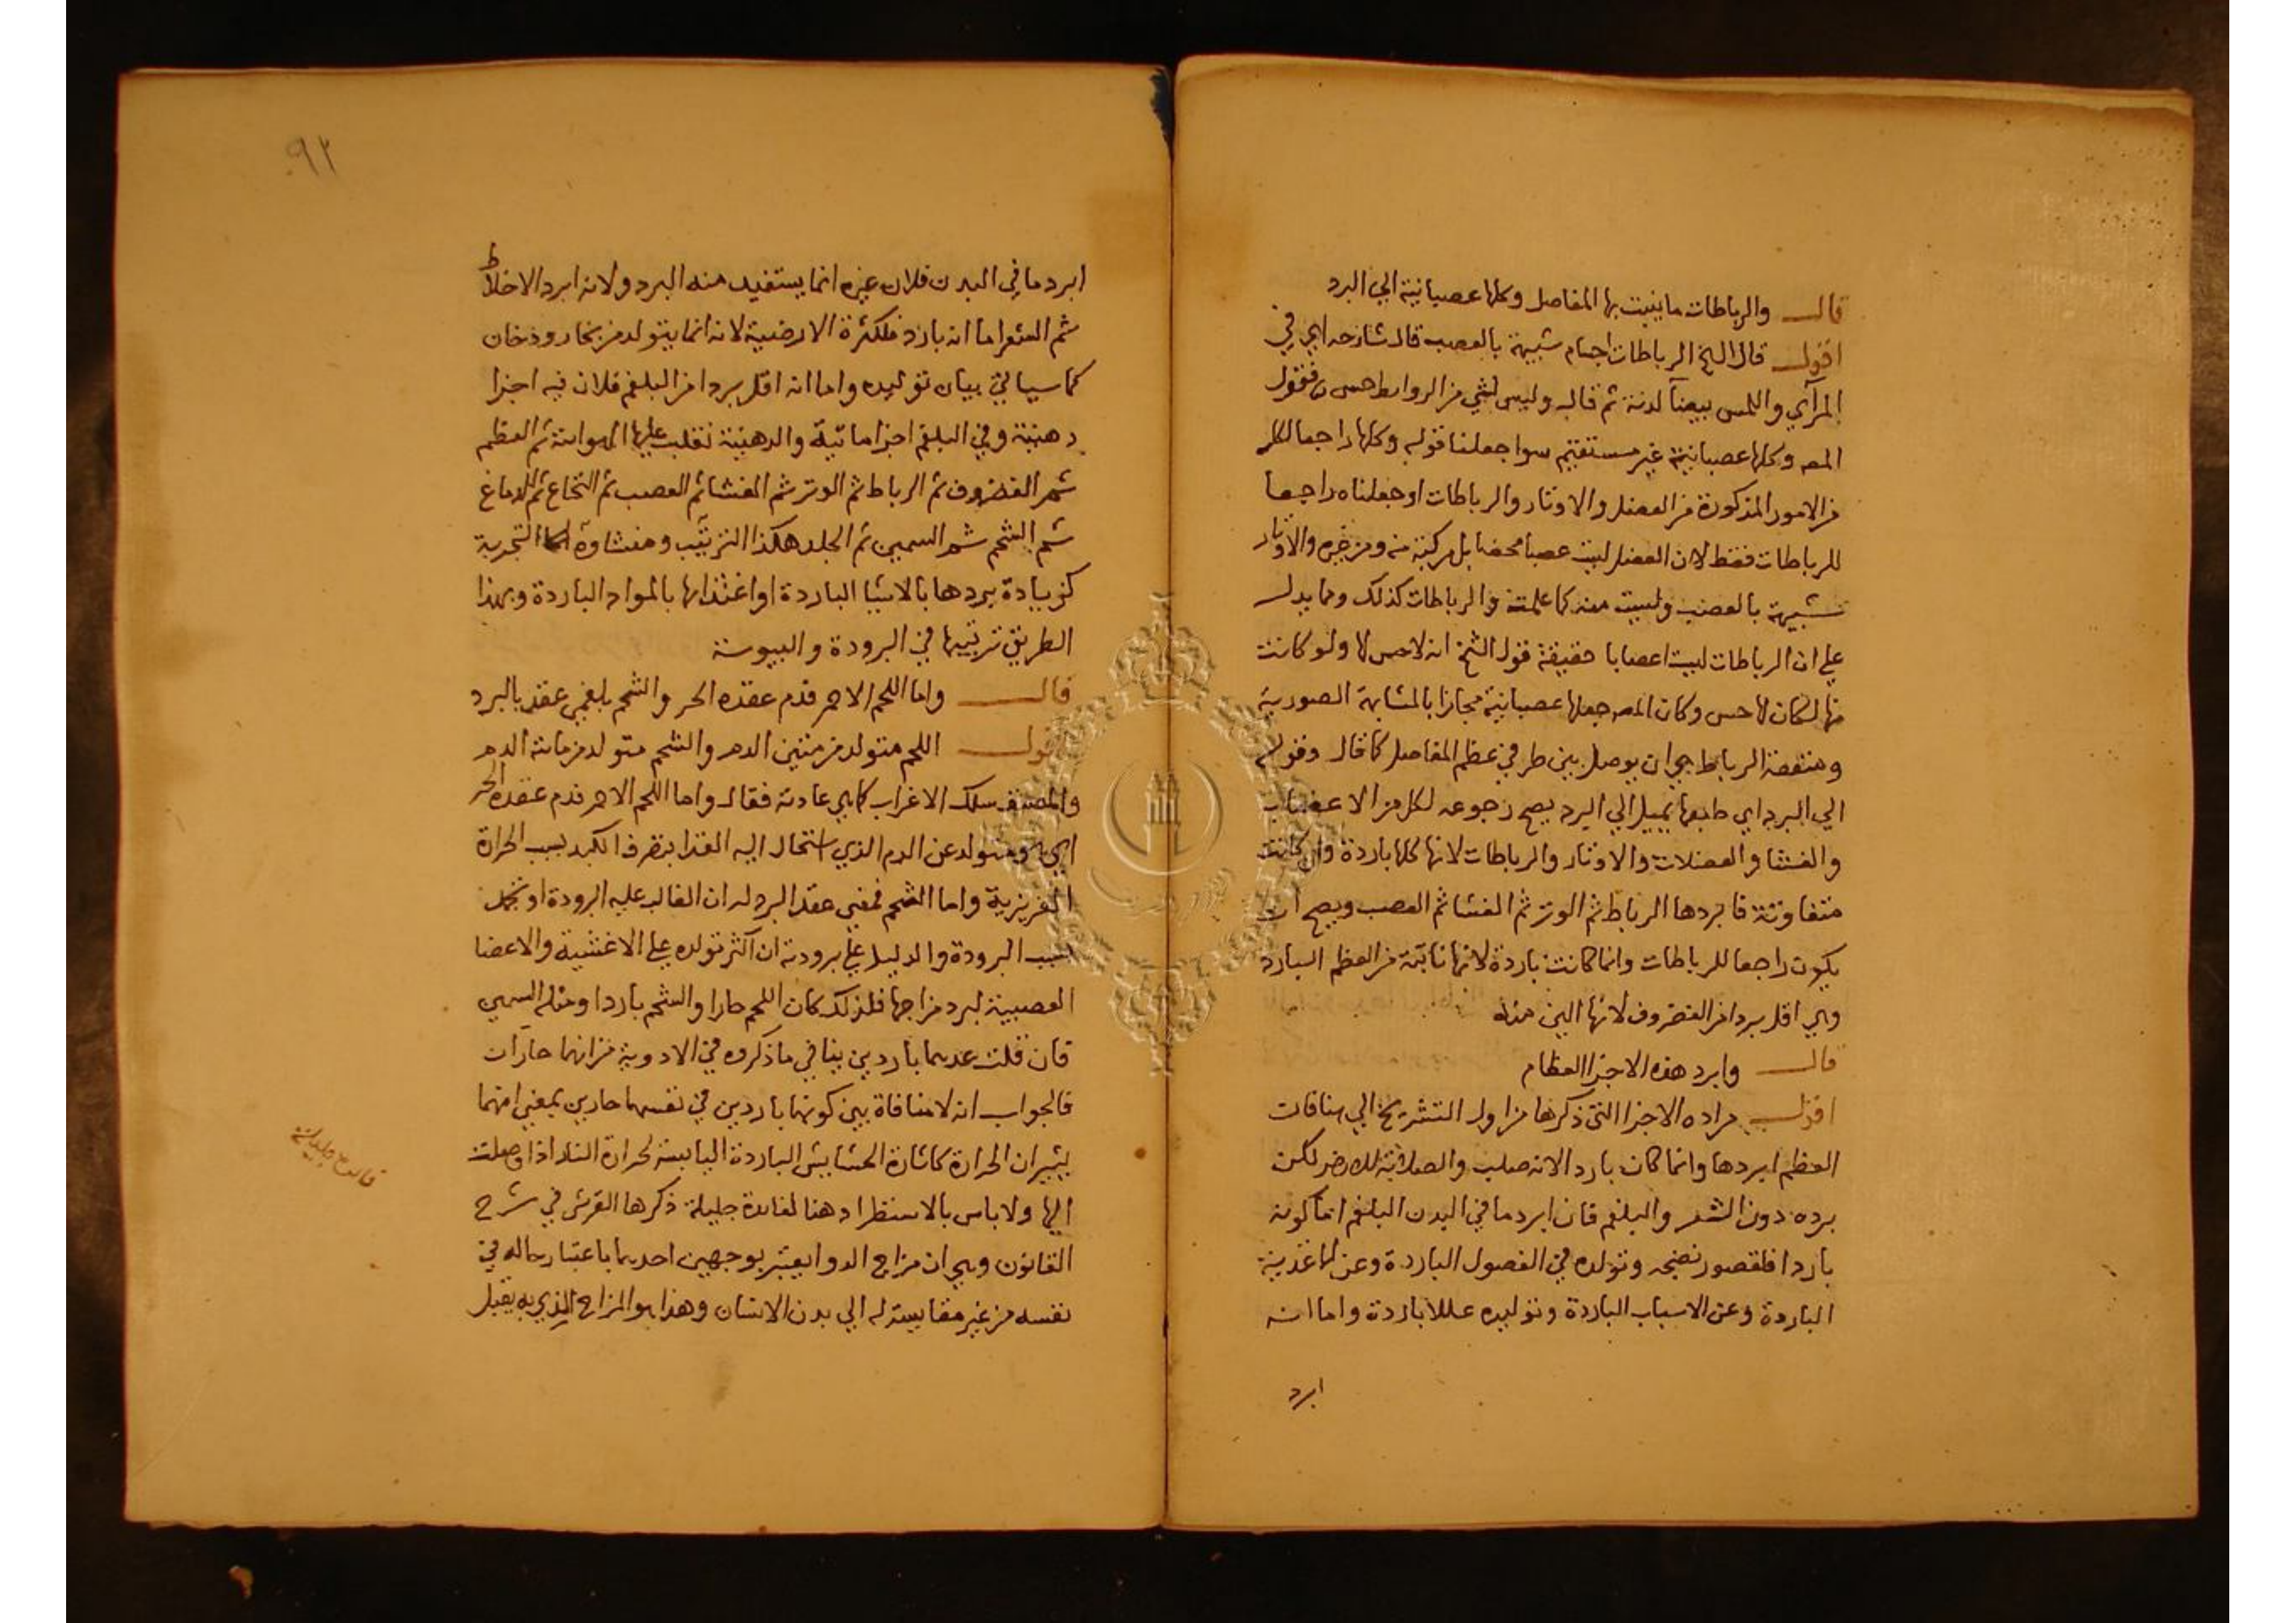 قال والرباطات ما يثبت بها المفاصل وكلها عصبانية الي البرد
اقول قال الشيخ الرباطات اجسام شبيهة بالعصب قال شارحه اي في
المرآي واللمس بيضآ لدنة ثم قال وليس لشي من الروابط حس فقول
المصـ وكلها عصبانية غير مستقيم سوا جعلنا قوله وكلها راجعا لكل
من الامور المذكورة من العضل والاوتار والرباطات او جعلناه راجعا
للرباطات فقط لان العضل ليست عصبا محضا بل مركبة منه ومن غيره والاوتار
شبيهة بالعصب وليست منه كما علمته والرباطات كذلك ومما يدل
علي ان الرباطات ليست اعصابا حقيقة قول الشيخ انه لا حس لها ولو كانت
منها لكان لها حس وكان المصـ جعلها عصبانية مجازا بالمشابهة الصورية
ومنفعة الرباط هي ان يوصل بين طرفي عظم المفاصل كما قال وقوله
الي البرد اي طبعها يميل الي البرد يصح رجوعه لكل من الاعصاب
والغشا والعضلات والاوتار والرباطات لانها كلها باردة وان كانت
متفاوتة فابردها الرباط ثم الوتر ثم الغشا ثم العصب ويصح ان
يكون راجعا للرباطات وانما كانت باردة لانها نابتة من العظم البارد
وهي اقل بردا من الغضروف لانها الين منه
قال وابرد هذه الاجزا العظام
اقول مراده الاجزا التي ذكرها من اول التشريح الي هنا فان
العظم ابردها وانما كان باردا لانه صلب والصلابة للارض لكن
برده دون الشعر والبلغم فان ابرد ما في البدن البلغم اما كونه
باردا فلقصور نضجه وتولده في الفصول الباردة وعن الاغذية
الباردة وعن الاسباب الباردة وتوليده عللا باردة واما انه
ابرد
٩٢
ابرد ما في البدن فلان غيره انما يستفيد منه البرد ولانه ابرد الاخلاط
ثم الشعر اما انه بارد فلكثرة الارضية لانه انما يتولد من بخار ودخان
كما سياتي بيان توليده واما انه اقل بردا من البلغم فلان فيه اجزا
دهنية وفي البلغم اجزا مائية والدهنية تغلب عليها الهوائية ثم العظم
ثم الغضروف ثم الرباط ثم الوتر ثم الغشا ثم العصب ثم النخاع ثم الدماغ
ثم الشحم ثم السمين ثم الجلد هكذا الترتيب ومنشاوه اما التجربة
كزيادة بردها بالاشيا الباردة او اغتذائها بالمواد الباردة وبهذا
الطريق ترتيبها في البرودة واليبوسة
قال واما اللحم الاحمر فدم عقده الحر والشحم بلغمي عقد بالبرد
اقول اللحم متولد من متين الدم والشحم متولد من مائة الدم
والمصنف سلك الاغراب كما هي عادته فقال واما اللحم الاحمر فدم عقده الحر
اي هو متولد عن الدم الذي استحال اليه الغذا بتصرف الكبد بسبب الحرارة
الغريزية واما الشحم فمعني عقد البرد له ان الغالب عليه البرودة او تجمد
بسبب البرودة والدليل علي برودته ان اكثر تولده علي الاغشية والاعضا
العصبية لبرد مزاجها فلذلك كان اللحم حارا والشحم باردا ومثله السمين
فان قلت عدهما باردين ينافي ما ذكروه في الادوية من انهما حاران
فالجواب انه لا منافاة بين كونهما باردين في نفسهما حارين بمعني انهما
يثيران الحرارة كاثارة الحشايش الباردة اليابسة لحرارة النار اذا وصلت
اليها ولا باس بالاستطراد هنا لفائدة جليلة ذكرها القرشي في شرح
القانون وهي ان مزاج الدوا يعتبر بوجهين احدهما باعتبار حاله في
نفسه من غير مقايسة له الي بدن الانسان وهذا هو المزاج الذي به يقبل
فائدة جليلة